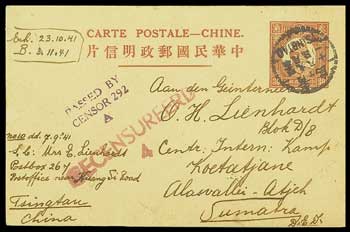 Erh. 23.10.41
B. 3.11.41
CARTE POSTALE—CHINE.
片信明政郵國民華中
PASSED BY
CENSOR 292
A
GECENSUREERD
4
Aan den Geinterneerde
O. H. Lienhardt
Blok D/8
Centr. Intern: Kamp
Koetatjane
Alasvallei - Atjeh
Sumatra
D.E.J.
No 10 dd. 7.9.41
A/b: Mrs E. Lienhardt
Postbox 267
Postoffice near Kuang Si Road
Tsingtau
China